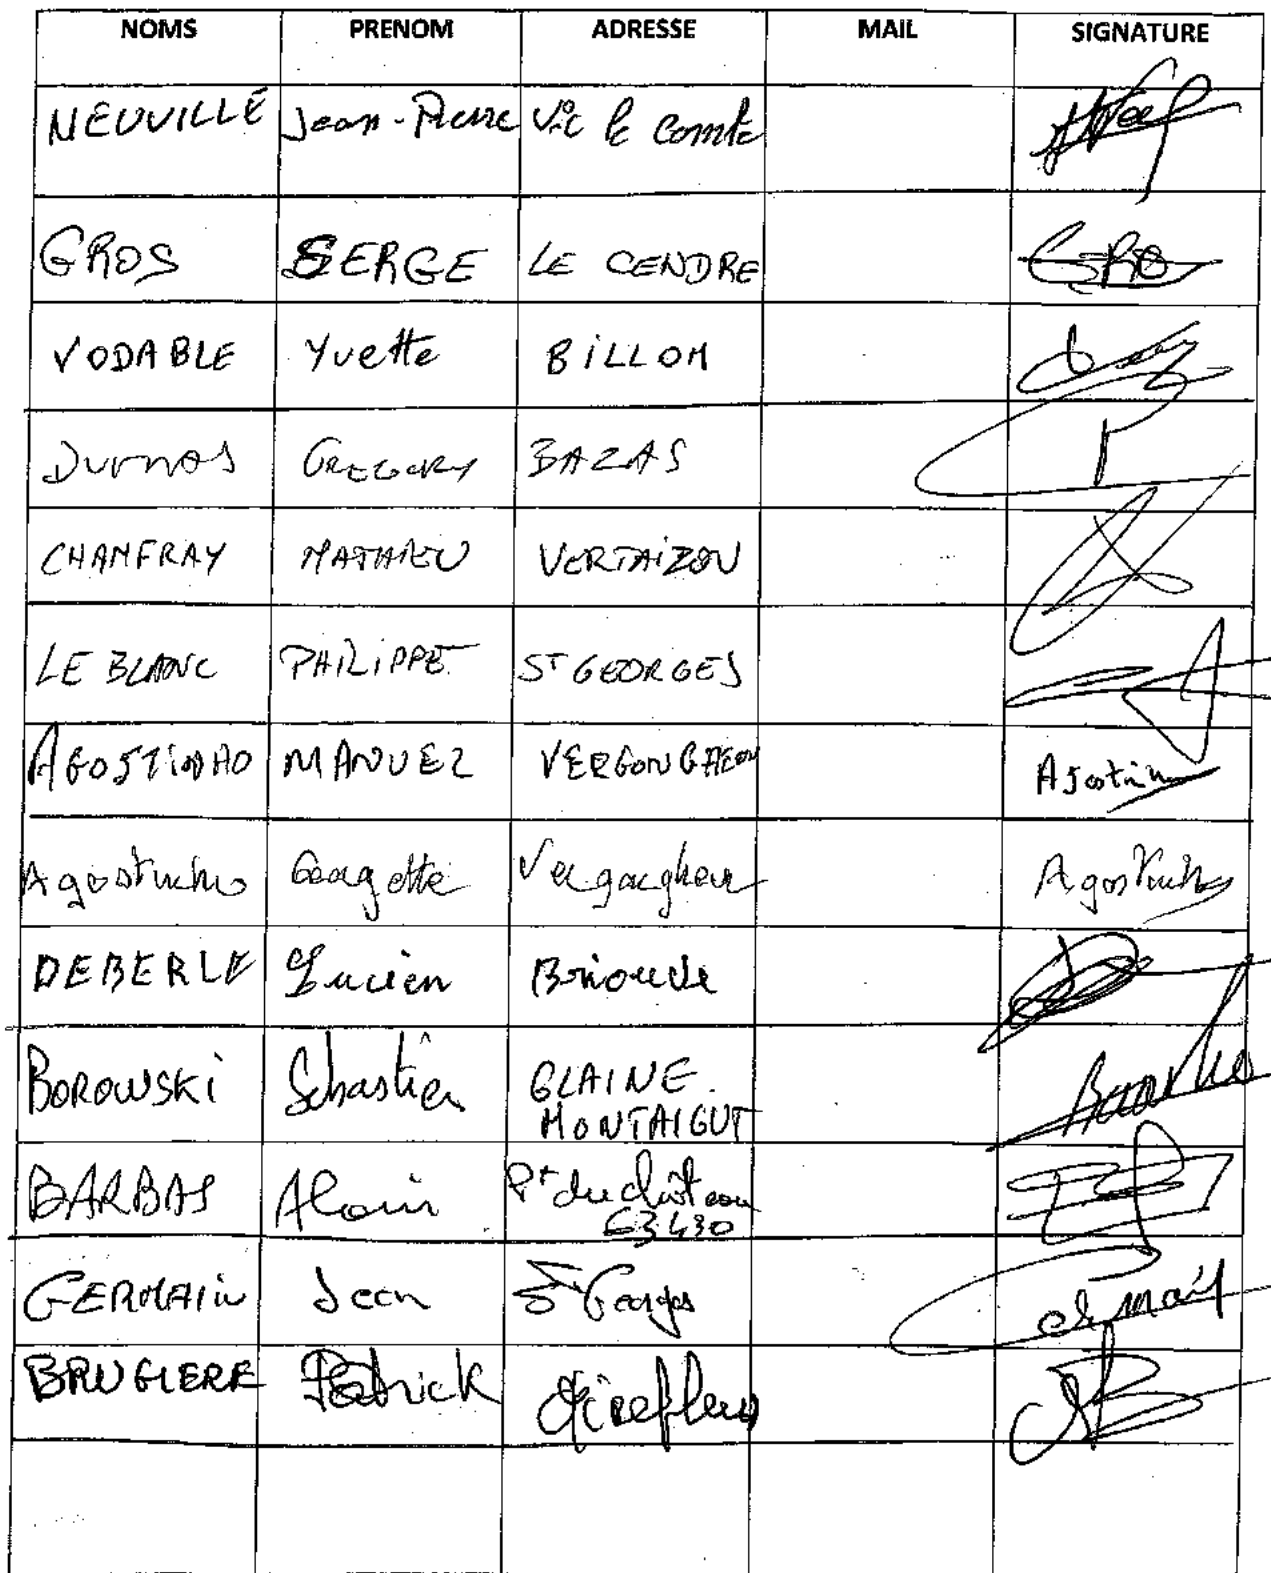 NOMS PRENOM ADRESSE MAIL SIGNATURE
NEUVILLE Jean-Pierre Vic le comte
GROS SERGE LE CENDRE GRO
VODABLE Yvette BILLOM
GREGORY BAZAS
CHANFRAY MATHIEU VERTAIZON
LE BLANC PHILIPPE ST GEORGES
AGOSTINHO MANUEL Agostin
Agostinho Georgette Agostinho
DEBERLE Lucien Brioude
BOROWSKI Sébastien GLAINE
MONTAIGUT
BARBAS Alain Pt du château
63430
GERMAIN Jean St Georges
BRUGIERE Patrick